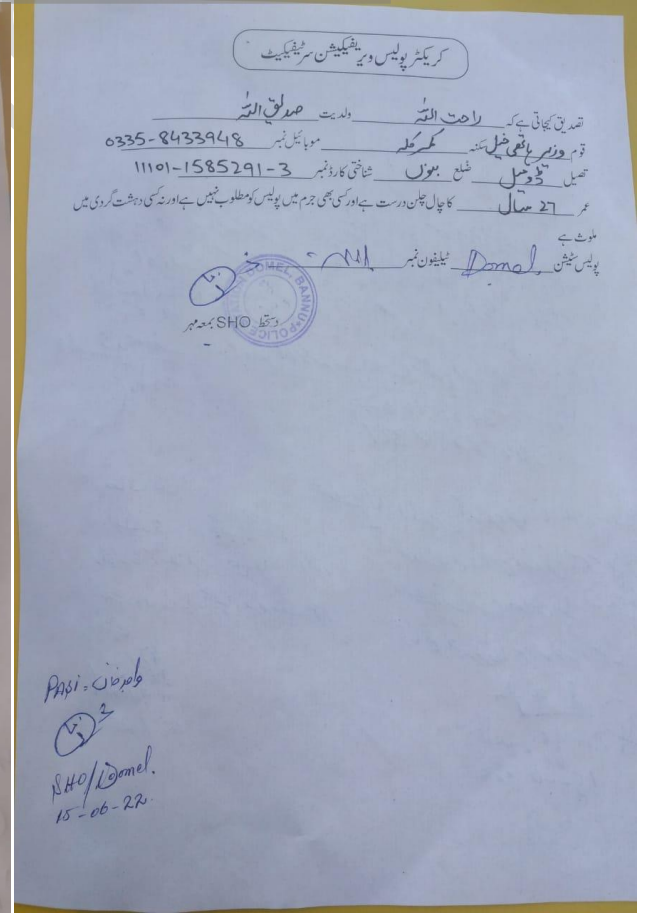 کریکٹر پولیس ویریفیکیشن سرٹیفیکیٹ
تصدیق کیجاتی ہے کہ راحت اللہ ولدیت صدیق اللہ
قوم وزیر ہاتھی خیل سکنہ موبائیل نمبر 0335-8433948
تحصیل ڈومیل ضلع بنوں شناختی کارڈ نمبر 11101-1585291-3
عمر 27 سال کا چال چلن درست ہے اور کسی بھی جرم میں پولیس کو مطلوب نہیں ہے اور نہ کسی دہشت گردی میں
ملوث ہے
پولیس سٹیشن Domel ٹیلیفون نمبر Nil
DOMEL BANNU POLICE
دستخط SHO بمعہ مہر
PASI:
SHO/Domel.
15-06-22